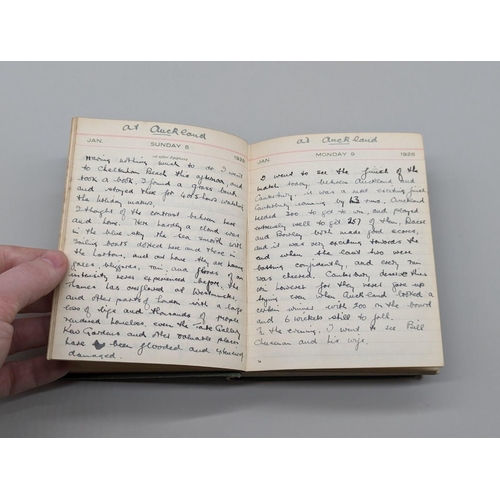 at Auckland
JAN. SUNDAY 8 1928
Having nothing much to do I went
to Cheltenham Beach this afternoon, and
took a book. I found a grass bank
and stayed there for 4 or 5 hours watching
the holiday makers.
I thought of the contrast between here
and home. Here hardly a cloud was
in the blue sky, the sea smooth with
sailing boats dotted here and there in
the harbour, and at home they are having
gales, blizzards, rain, and floods of an
intensity never experienced before, the
Thames has overflowed at Westminster,
and other parts of London with a large
loss of life and thousands of people
rendered homeless, even the Tate Gallery
Kew Gardens and other valuable places
have been flooded and
damaged.
at Auckland
JAN. MONDAY 9 1928
I went to see the final of the
match today between Auckland and
Canterbury. it was a most exciting final
Canterbury winning by 43 runs, Auckland
needed 300 to get to win, and played
extremely well to get 257 of them, Dacre
and Bowley both made good scores,
and it was very exciting towards the
end when the last two were
batting confidently, and every run
was cheered. Canterbury deserve this
win however for they never gave up
trying even when Auckland looked a
certain winner with 200 on the board
and 6 wickets still to fall.
In the evening I went to see Bill
and his wife.